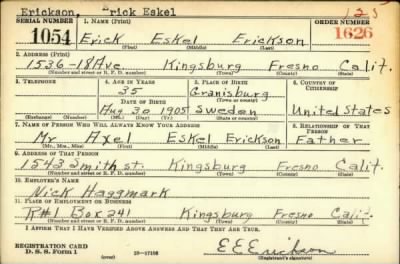 Erickson, Erick Eskel
SERIAL NUMBER 1. NAME (Print) ORDER NUMBER
1054 Erick Eskel Erickson 1626
(First) (Middle) (Last)
2. ADDRESS (Print)
1536-18 Ave. Kingsburg Fresno Calif.
(Number and street or R. F. D. number) (Town) (County) (State)
3. TELEPHONE 4. AGE IN YEARS 5. PLACE OF BIRTH 6. COUNTRY OF CITIZENSHIP
35 Granisburg
DATE OF BIRTH (Town or county)
Aug 30 1905 Sweden United States
(Exchange) (Number) (Mo.) (Day) (Yr.) (State or country)
7. NAME OF PERSON WHO WILL ALWAYS KNOW YOUR ADDRESS 8. RELATIONSHIP OF THAT PERSON
Mr Axel Eskel Erickson Father
(Mr., Mrs., Miss) (First) (Middle) (Last)
9. ADDRESS OF THAT PERSON
1543 Smith st. Kingsburg Fresno Calif.
(Number and street or R. F. D. number) (Town) (County) (State)
10. EMPLOYER'S NAME
Nick Haggmark
11. PLACE OF EMPLOYMENT OR BUSINESS
R#1 Box 241 Kingsburg Fresno Calif.
(Number and street or R. F. D. number) (Town) (County) (State)
I AFFIRM THAT I HAVE VERIFIED ABOVE ANSWERS AND THAT THEY ARE TRUE.
REGISTRATION CARD
D. S. S. Form 1 (over) 16-17105 E E Erickson
(Registrant's signature)